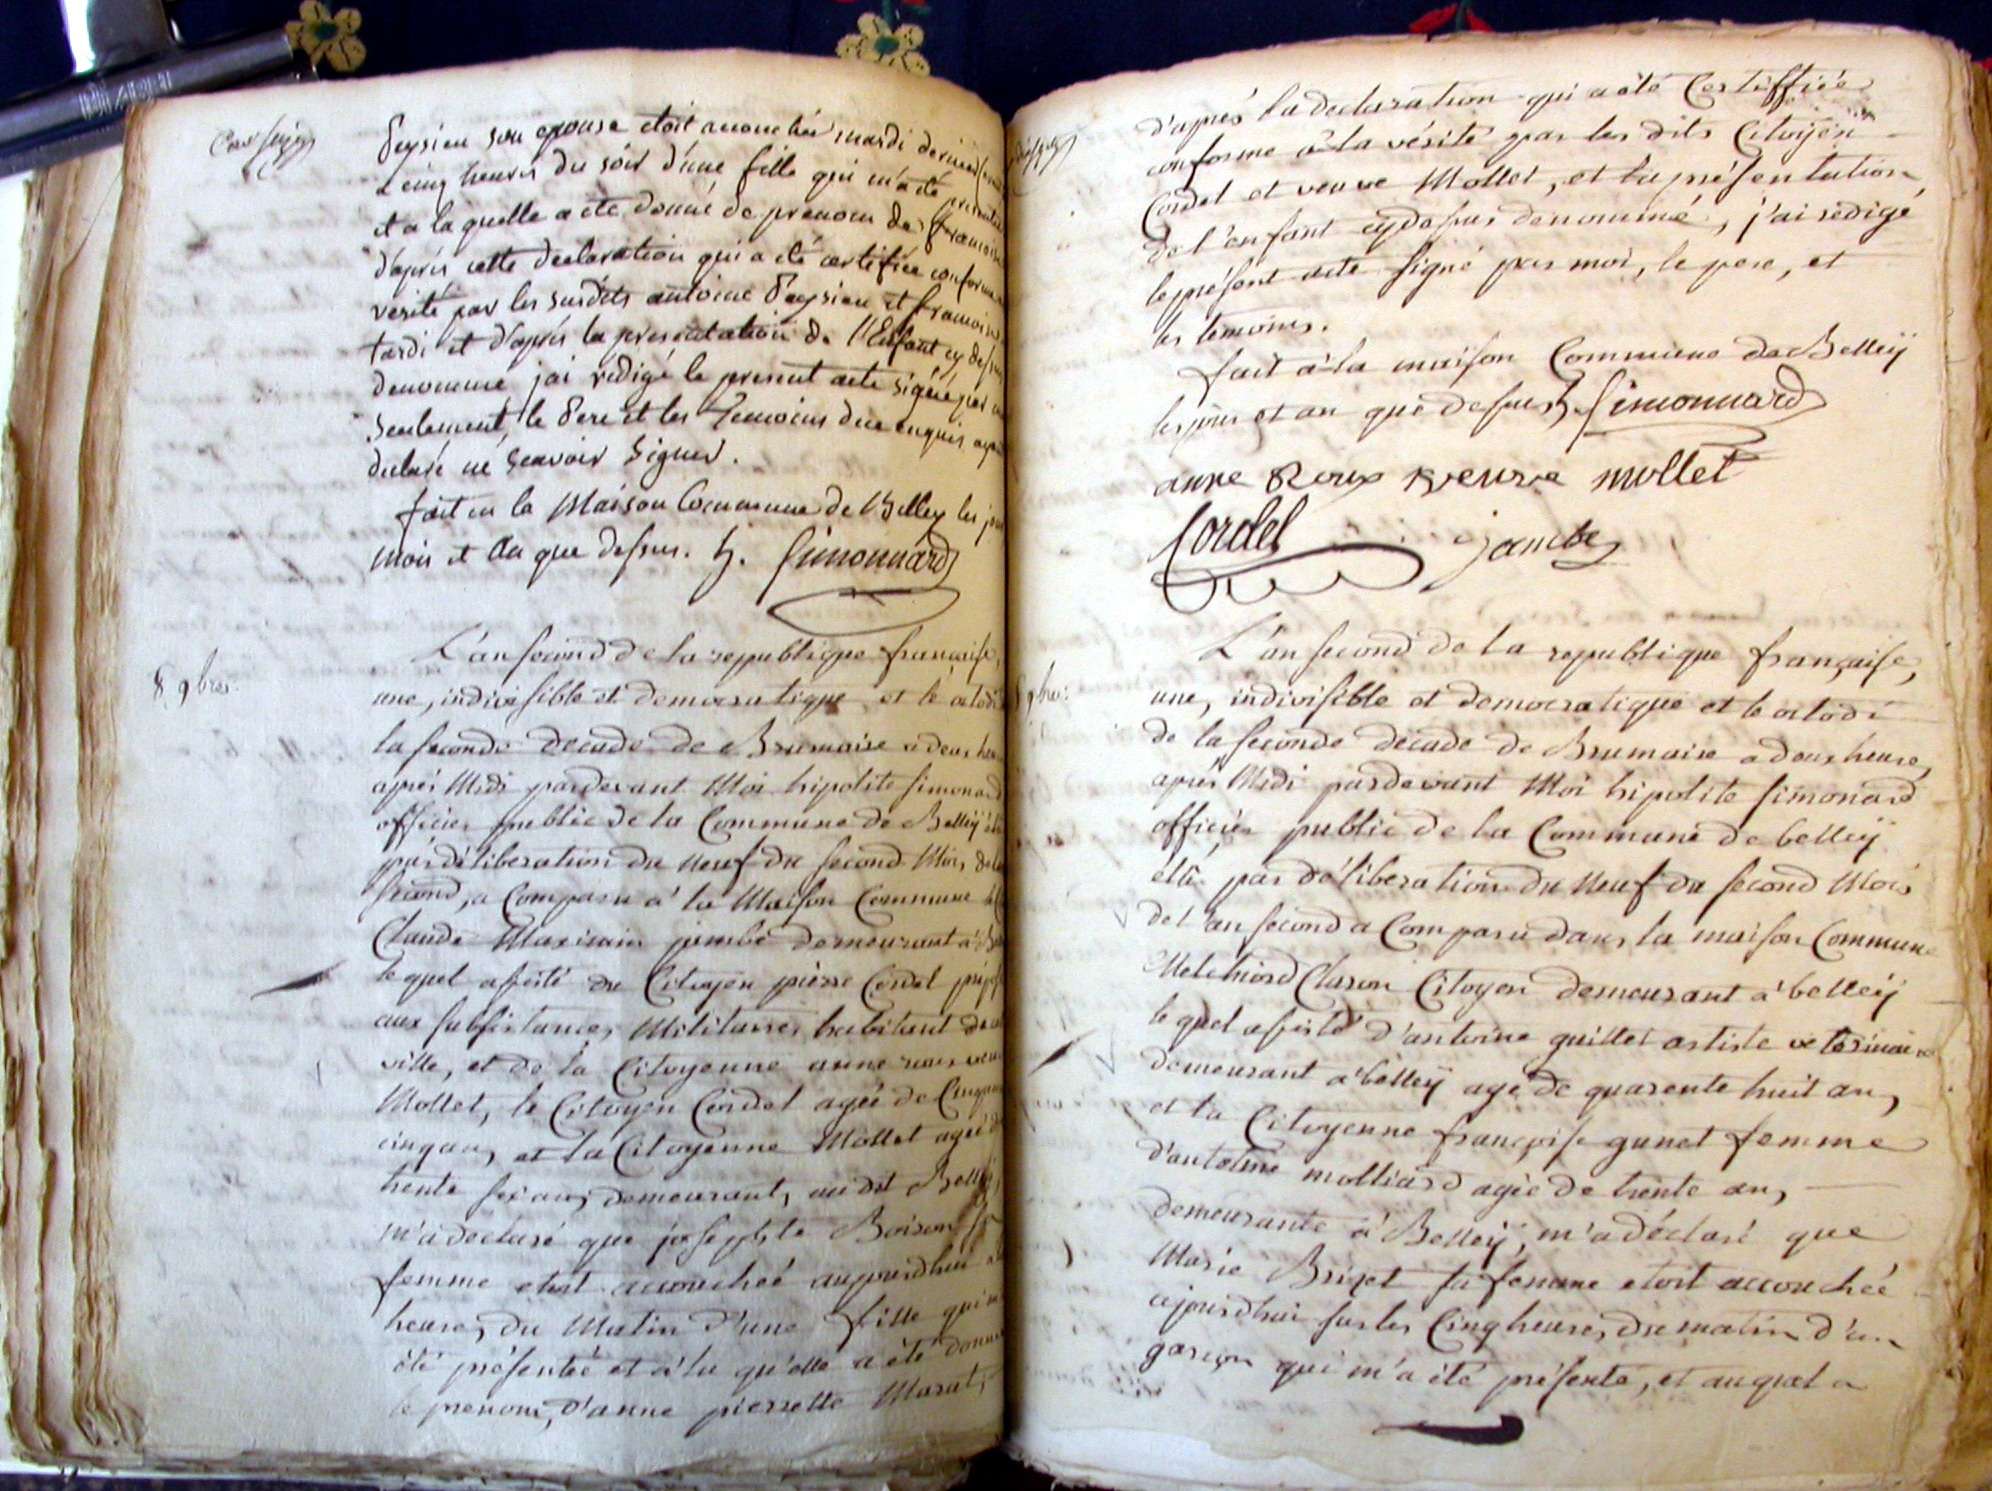 Peysieu son epouse etoit accouchée mardi dernier
a cinq heures du soir d'une fille qui m'a été presentée
et a la quelle a eté donné de prenom de francoise
d'aprés cette declaration qui a été certifiée conforme
verité par les susdits antoine Peysieu et francoise
tardi et d'aprés la presentation de l'Enfant cy dessus
denommé jai redigé le present acte signé par
seulement, le Pere et les Temoins de ce enquis
declaré né scavoir signer.
fait en la Maison Commune de Belley les jour
mois et an que dessus. h. Simonnard
8 9bres.
L'an second de la republique française,
une, indivisible et democratique et le octodi
la seconde decade de Brumaire a deux heures
aprés Midi pardevant Moi hipolite simonard
officier public de la Commune de Belleÿ élu
par déliberation du Neuf du second Mois de
second, a Comparu à la Maison Commune
Claude Maximin jambe demeurant à
le quel assisté du Citoyen pierre Cordel
aux subsistances Militaires habitant
ville, et de la Citoyenne anne roux veuve
Mollet, le Citoyen Cordel agée de Cinquante
cinq ans, et la Citoyenne Mollet agée de
trente six ans, demeurant, au dit Belleÿ,
m'a déclaré que josephte Boison sa
femme etoit accouchée aujourdhui
heures du Matin d'une fille qui m'a
été présentée et à la qu'elle a été donné
le prenom, d'anne pierrette Marat,
d'aprés la declaration qui a été Certiffiée
conforme à la vérité par les dits Citoÿen
Cordel et veuve Mollet, et la présentation
de l'enfant cy dessus denommé, j'ai redigé
le présent acte signé par moi, le pere, et
les temoins.
fait à la maison Commune de Belleÿ
les jour et an que dessus h. Simonnard
anne Roux veuve mollet
Cordel jambe
9bre:
L'an second de la republique française,
une, indivisible et democratique et le octodi
de la seconde decade de Brumaire a deux heures,
aprés Midi pardevant Moi hipolite simonard
officier public de la Commune de belleÿ
élû par déliberation du Neuf du second Mois
de l'an second a Comparu dans la maison Commune
Melchiord Claron Citoyen demeurant à belleÿ
le quel assisté d'antoine guillet artiste veterinaire
demeurant à belleÿ agé de quarente huit ans,
et la Citoyenne françoise gunet femme
d'antoine molliard agée de trente ans,
demeurante à Belleÿ, m'a déclaré que
Marie Brizet sa femme etoit accouchée
ajourdhui sur les Cinq heures du matin d'un
garçon qui m'a été présenté, et auquel a